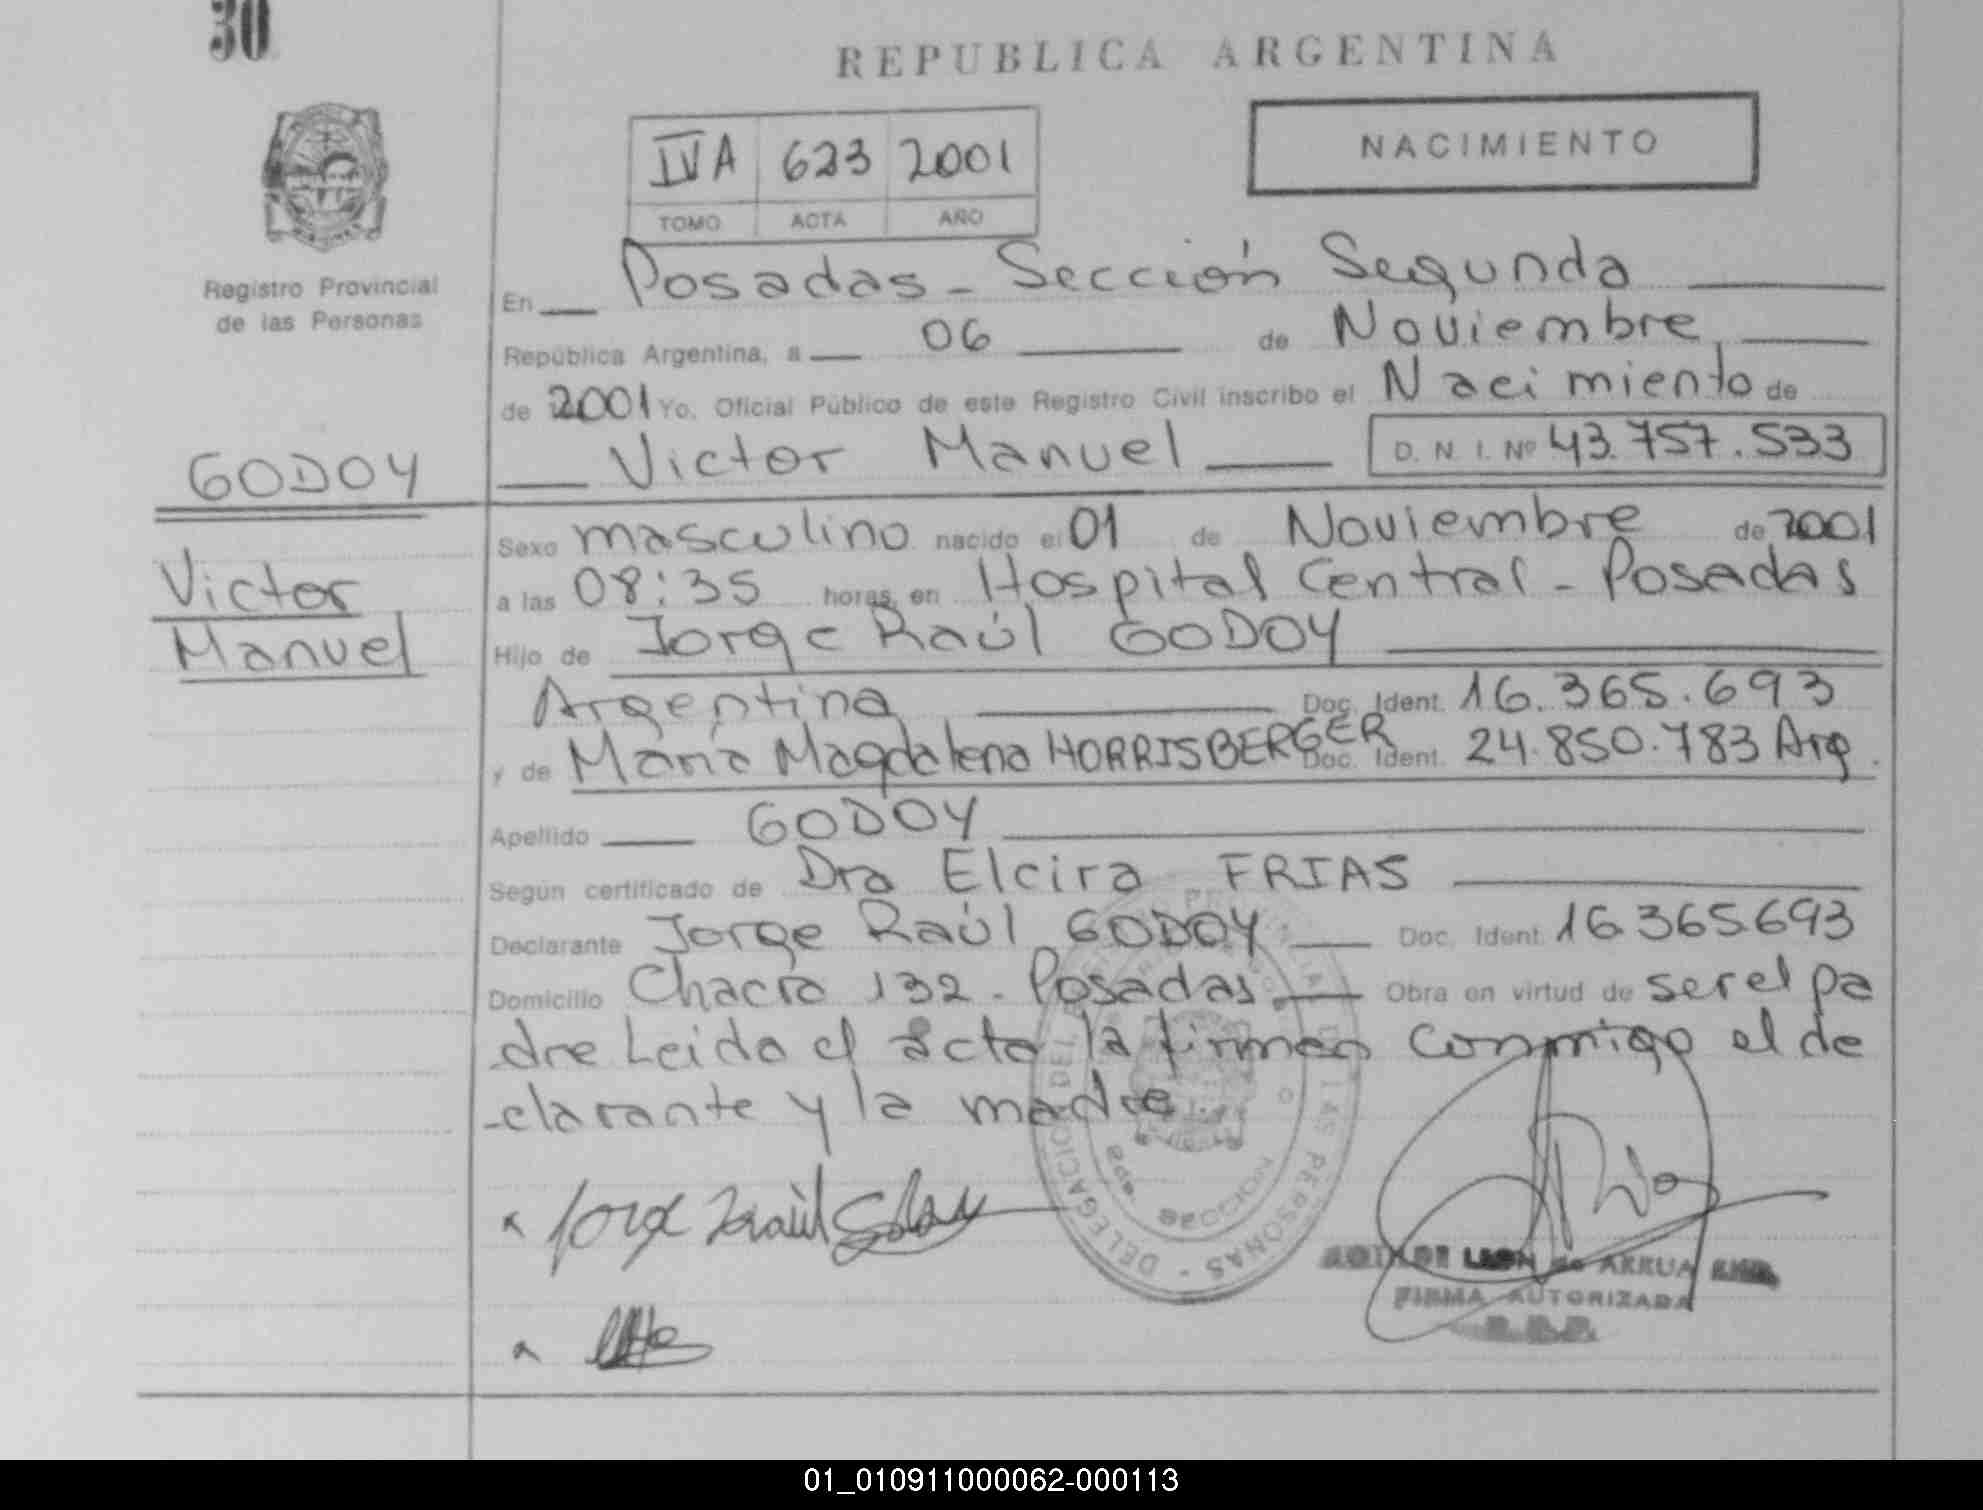 30
REPUBLICA ARGENTINA
IVA 623 2001
TOMO ACTA AÑO
NACIMIENTO
Registro Provincial
de las Personas
En Posadas - Sección Segunda
República Argentina, a 06 de Noviembre
de 2001 Yo, Oficial Público de este Registro Civil inscribo el Nacimiento de
Victor Manuel D. N. I. Nº 43.757.533
GODOY
Victor
Manuel
Sexo masculino nacido el 01 de Noviembre de 2001
a las 08:35 horas, en Hospital Central - Posadas
Hijo de Jorge Raúl GODOY
Argentina Doc. Ident. 16.365.693
y de María Magdalena HORRISBERGER Doc. Ident. 24.850.783 Arg.
Apellido GODOY
Según certificado de Dra Elcira FRIAS
Declarante Jorge Raúl GODOY Doc. Ident. 16.365.693
Domicilio Chacra 132 - Posadas Obra en virtud de ser el pa
dre Leido el acta la firman conmigo el de
-clarante y la madre
Jorge Raúl Godoy
DELEGACION SECCION
DE LAS PERSONAS
LEON de ARRUA
FIRMA AUTORIZADA
01_010911000062-000113